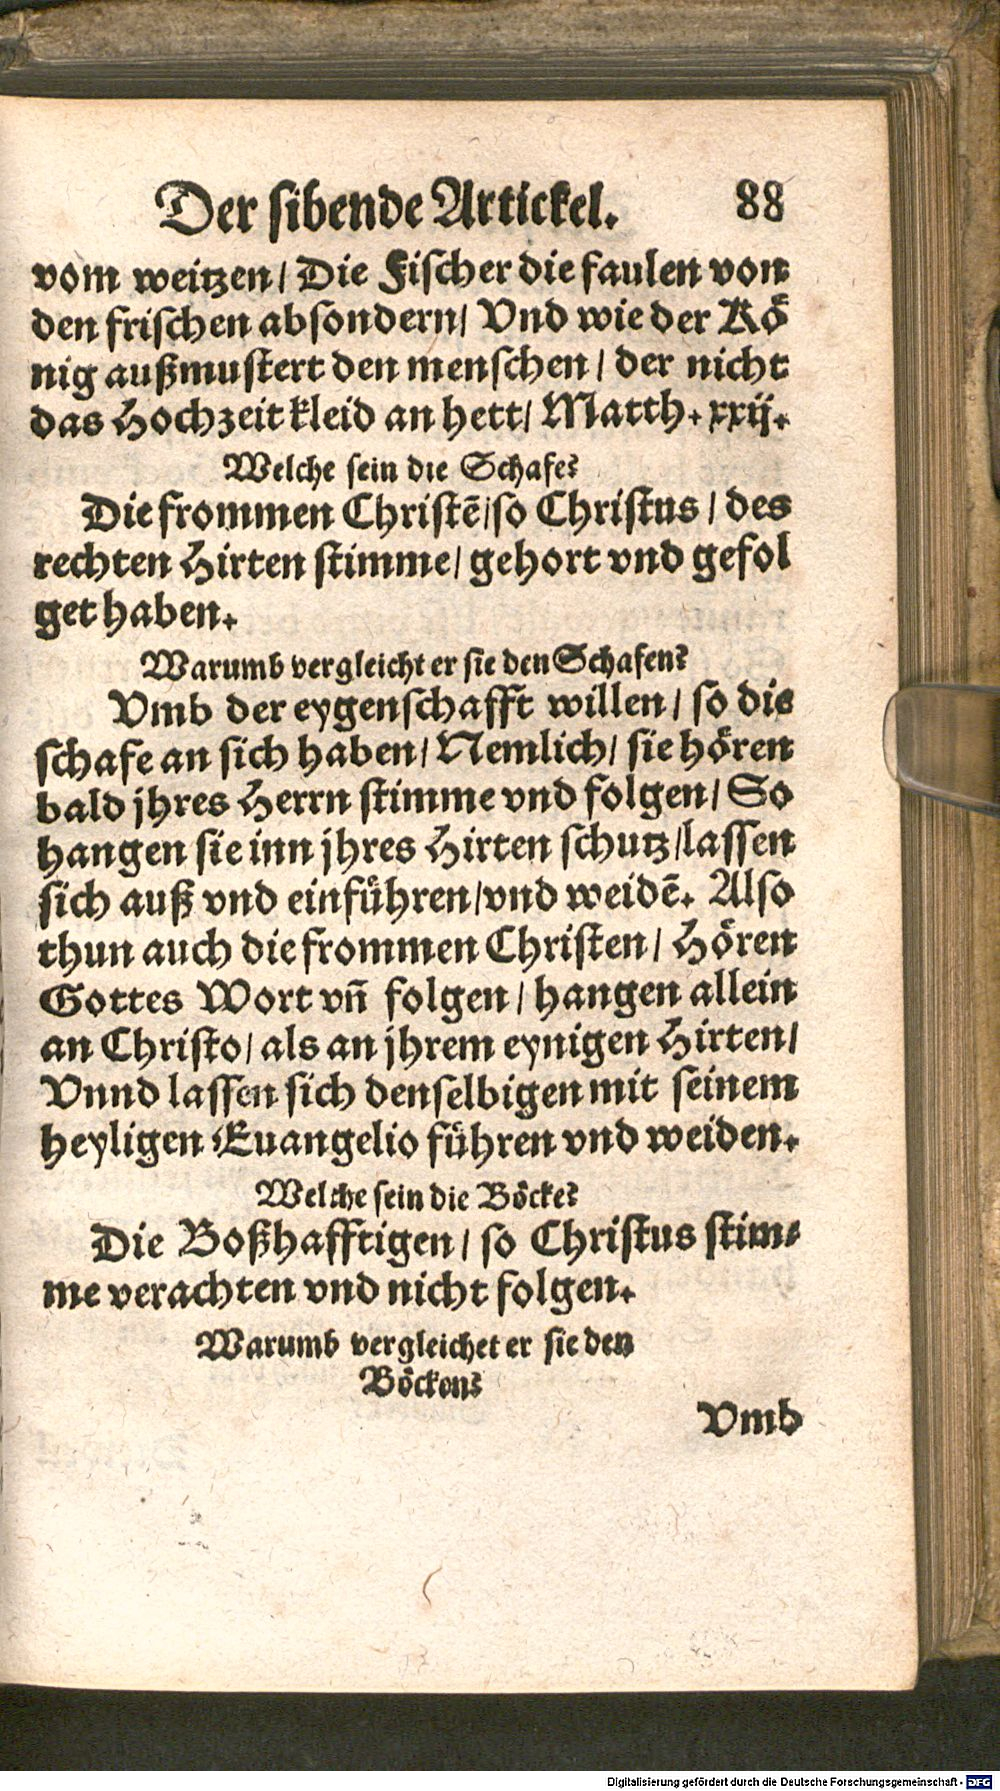 Der sibende Artickel. 88
vom weitzen/ Die Fischer die faulen von
den frischen absondern/ Vnd wie der Kö
nig außmustert den menschen/ der nicht
das Hochzeit kleid an hett/ Matth. xxij.
Welche sein die Schafe?
Die frommen Christē/ so Christus/ des
rechten Hirten stimme/ gehort vnd gefol
get haben.
Warumb vergleicht er sie den Schafen?
Vmb der eygenschafft willen/ so die
schafe an sich haben/ Nemlich/ sie hören
bald jhres Herrn stimme vnd folgen/ So
hangen sie inn jhres Hirten schutz/ lassen
sich auß vnd einführen/ vnd weidē. Also
thun auch die frommen Christen/ Hören
Gottes Wort vñ folgen/ hangen allein
an Christo/ als an jhrem eynigen Hirten/
Vnnd lassen sich denselbigen mit seinem
heyligen Euangelio führen vnd weiden.
Welche sein die Böcke?
Die Boßhafftigen/ so Christus stim-
me verachten vnd nicht folgen.
Warumb vergleichet er sie den
Böcken?
Vmb
Digitalisierung gefördert durch die Deutsche Forschungsgemeinschaft - DFG